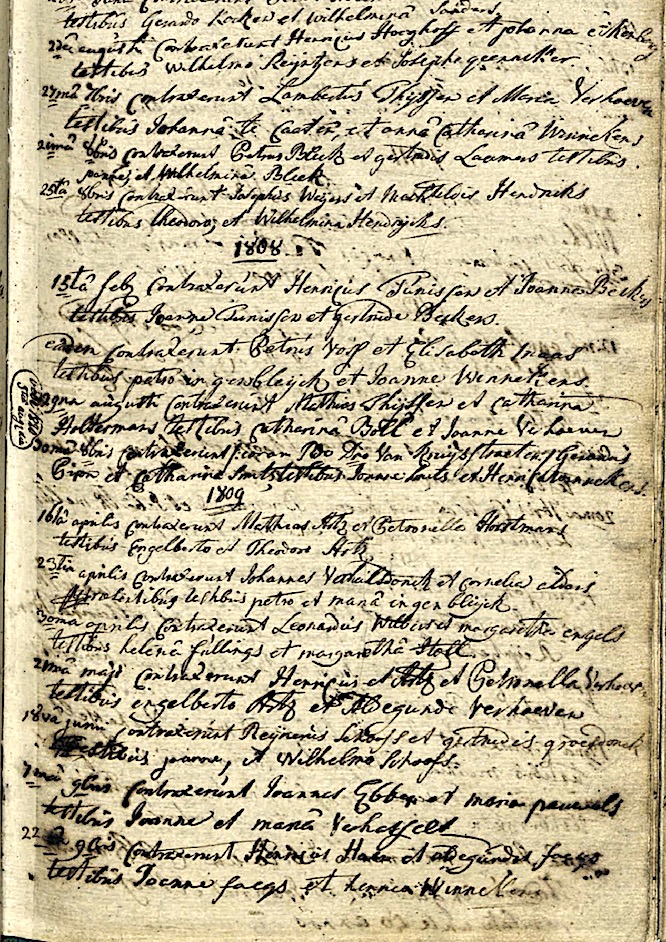 testibus Gerardo Kocken et Wilhelmina Sanders,
22da augusti contraxerunt Henricus Hooghoff et Johanna
testibus Wilhelmo Reijntjens et Josepho
27ma 7bris contraxerunt Lambertus Thijssen et Maria Verhoeven
testibus Johanna te Caater, et anna Catharina Winnekens
8bris contraxerunt Petrus Bleek et gertrudis Laamers testibus
et Wilhelmina Bleek
25ta 8bris contraxerunt Josephus et Hendriks
testibus theodoro, et Wilhelmina Hendrijcks.
1808
15ta feb contraxerunt Henricus Tunissen et Joanna Beckers
testibus Joanne Tunissen et gertrude Beckers.
eadem contraxerunt Petrus Voss et Elisabeth
testibus petro ingenbleijck et Joanne Wennekens.
augusti contraxerunt Mathias Thijssen et catharina
Holtermans testibus catharina Boll et Joanne Verhoeven
8bris contraxerunt coram Rdo Dno Van Gerardus
et Catharina Smits testibus Joanne et Henrica Winnekens.
1809
16ta aprilis contraxerunt Mathias Artz et Petronella Horstmans
testibus Engelberto et Theodoro Artz
23tia aprilis contraxerunt Johannes et cornelia
testibus petro et maria ingenbleijck.
30ma aprilis contraxerunt Leonardus Wilbers et margaretha engels
testibus helena füllings et margaretha Stoll.
maji contraxerunt Henricus et Artz et Petronella Verhoeven
testibus engelberto Artz et Aldegunde Verhoeven
18va junii contraxerunt Reijnerus Schoofs et gertrudis groesdonck
testibus et Wilhelmo Schoofs.
7ma 9bris contraxerunt Joannes Ebben et maria pauwels
testibus Joanne et maria Verhasselt
22 9bris contraxerunt Henricus et Aldegundis faegs
testibus Joanne faegs et henrica Winnekens